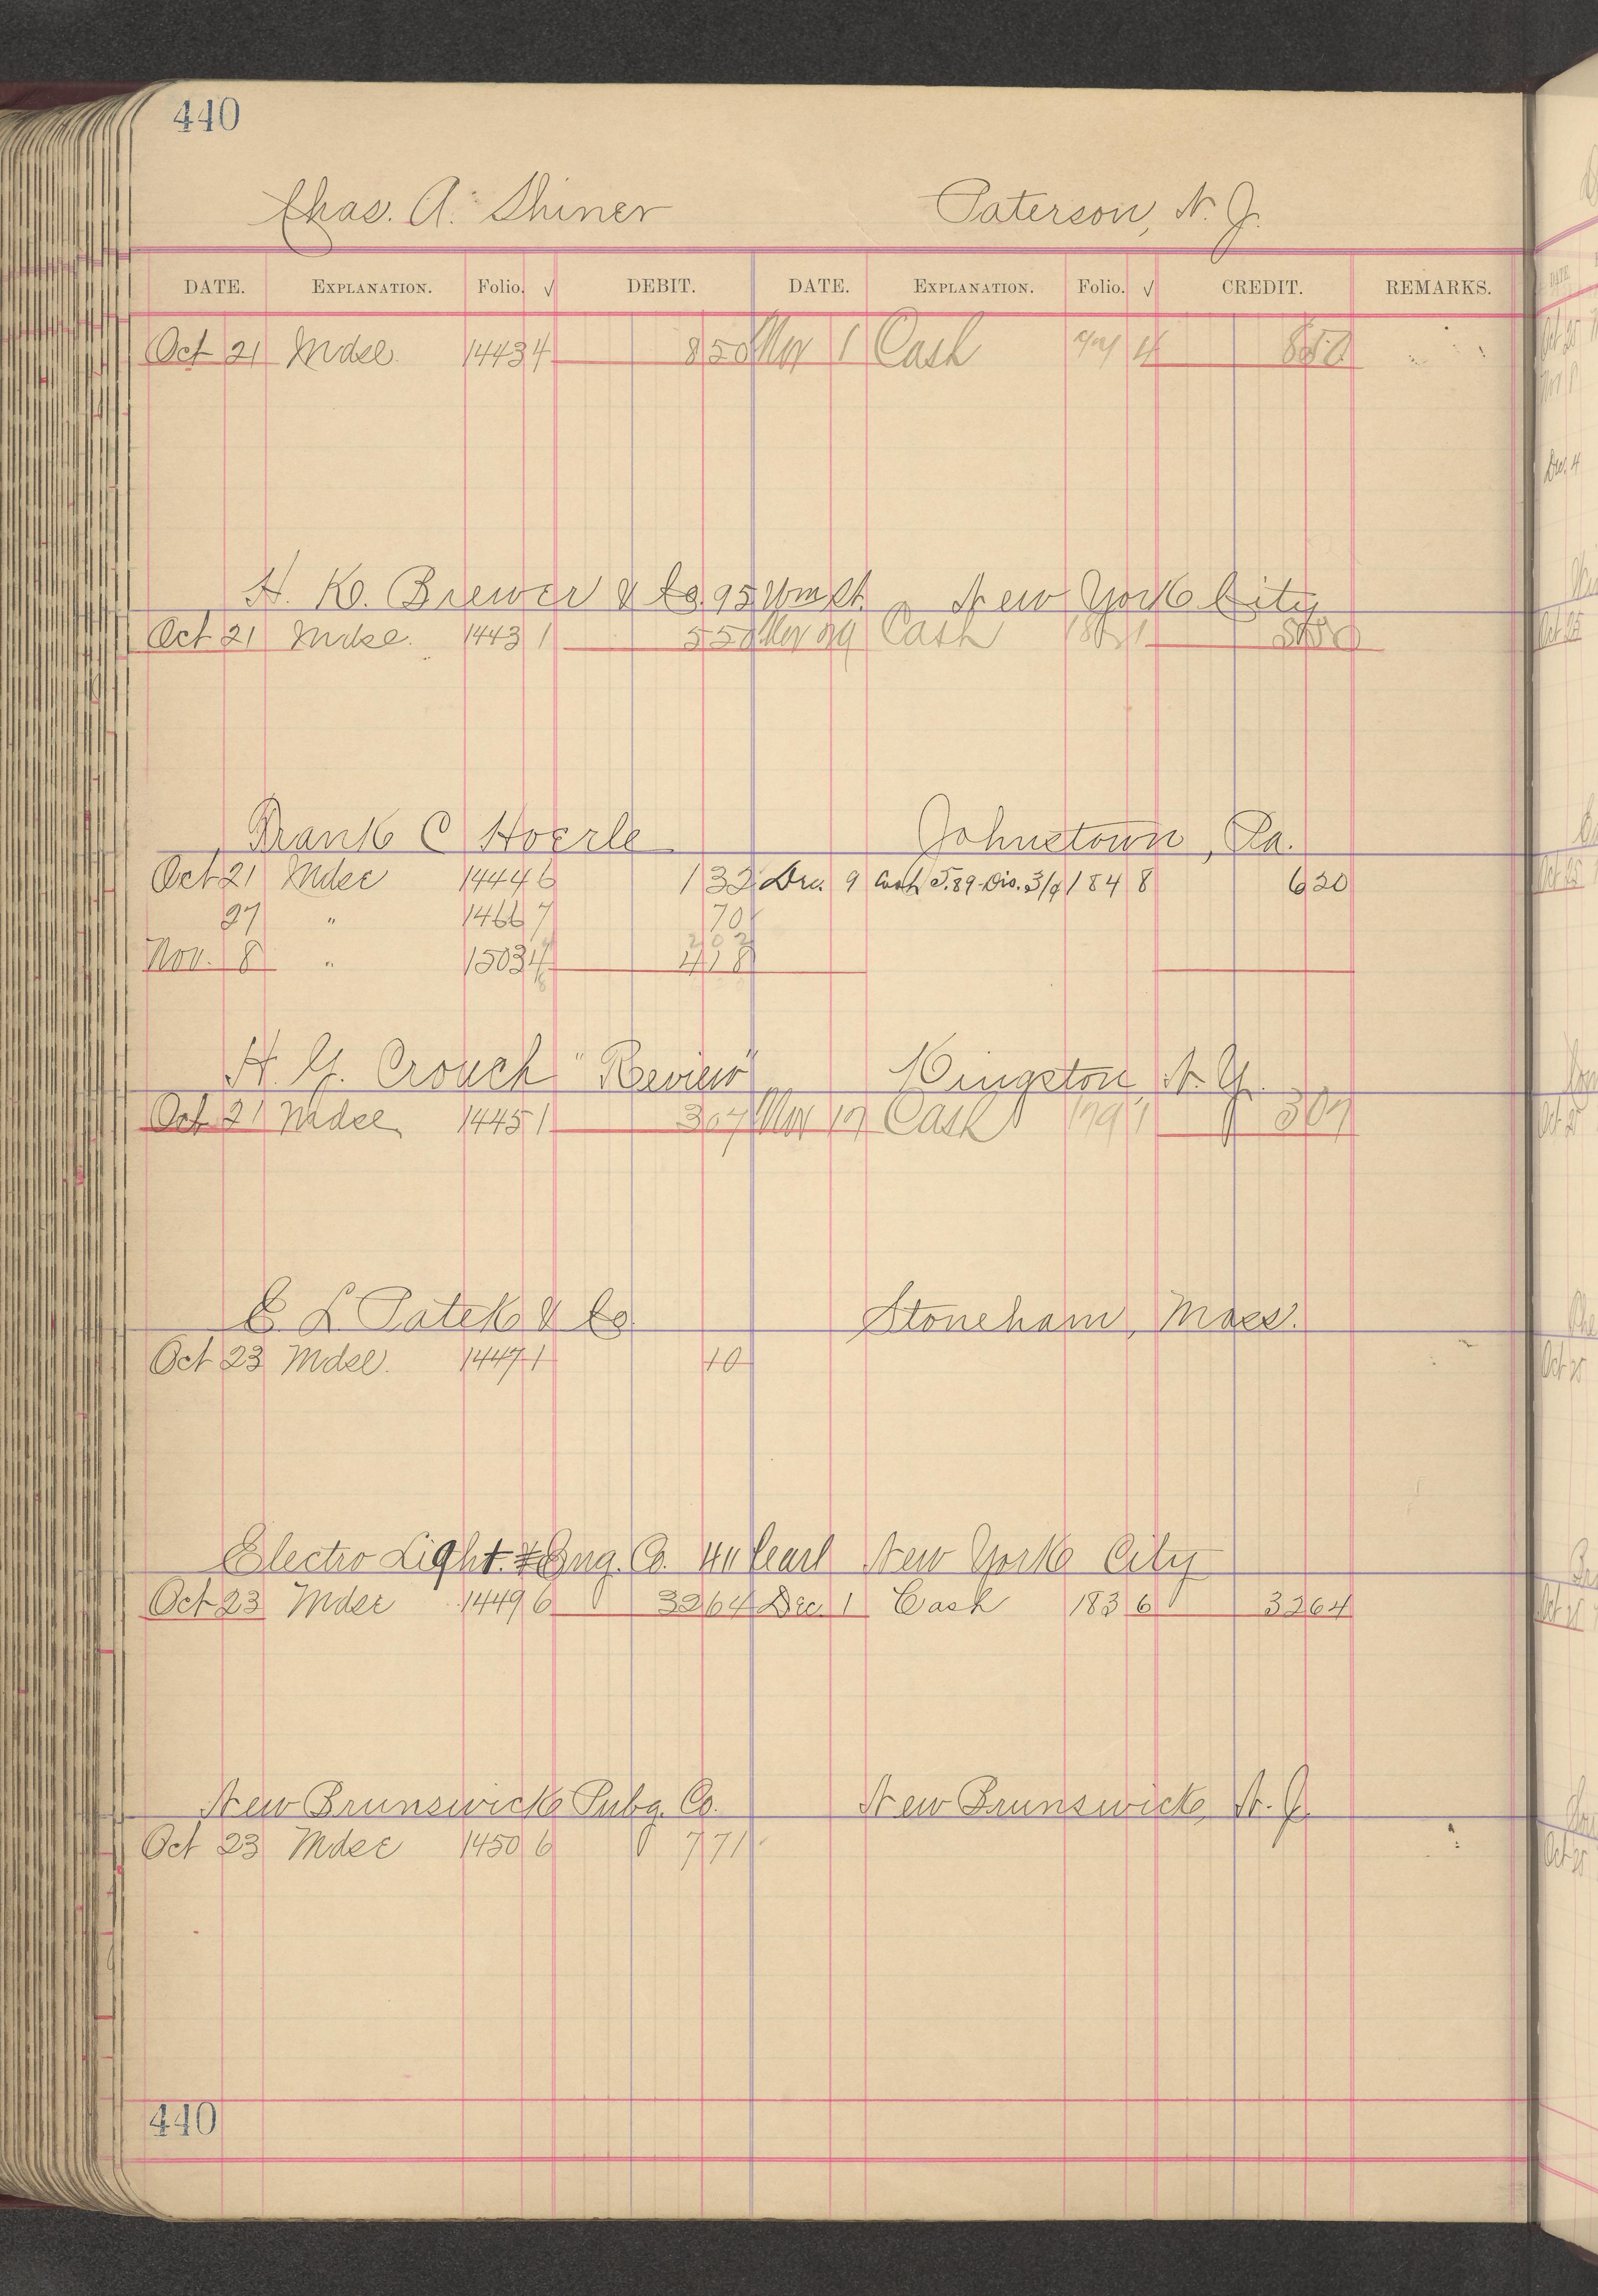 440
Chas. A. Shiner Paterson, N. J.
DATE. EXPLANATION. Folio. √ DEBIT. DATE. EXPLANATION. Folio. √ CREDIT. REMARKS.
Oct 21 Mdse. 1443 4 8 50 Nov 1 Cash 4 8 50
H. K. Brewer & Co. 95 Wm St. New York City
Oct 21 Mdse. 1443 1 5 50 Nov 29 Cash 5 50
Frank C Hoerle Johnstown, Pa.
Oct 21 Mdse 1444 6 1 32 Dec. 9 Cash 5.89 Dis. 31¢ 184 8 6 20
27 " 1466 7 70
2 02
Nov. 8 " 1503 4 18
H. G. Crouch "Review" Kingston, N. Y.
Oct 21 Mdse 1445 1 3 07 Nov 17 Cash 179 1 3 07
E L Patek & Co. Stoneham, Mass.
Oct 23 Mdse. 1447 1 10
Electro Light. & Eng. Co. 411 Pearl New York City
Oct 23 Mdse 1449 6 32 64 Dec. 1 Cash 183 6 32 64
New Brunswick Pubg. Co. New Brunswick, N. J.
Oct 23 Mdse 1450 6 7 71
440